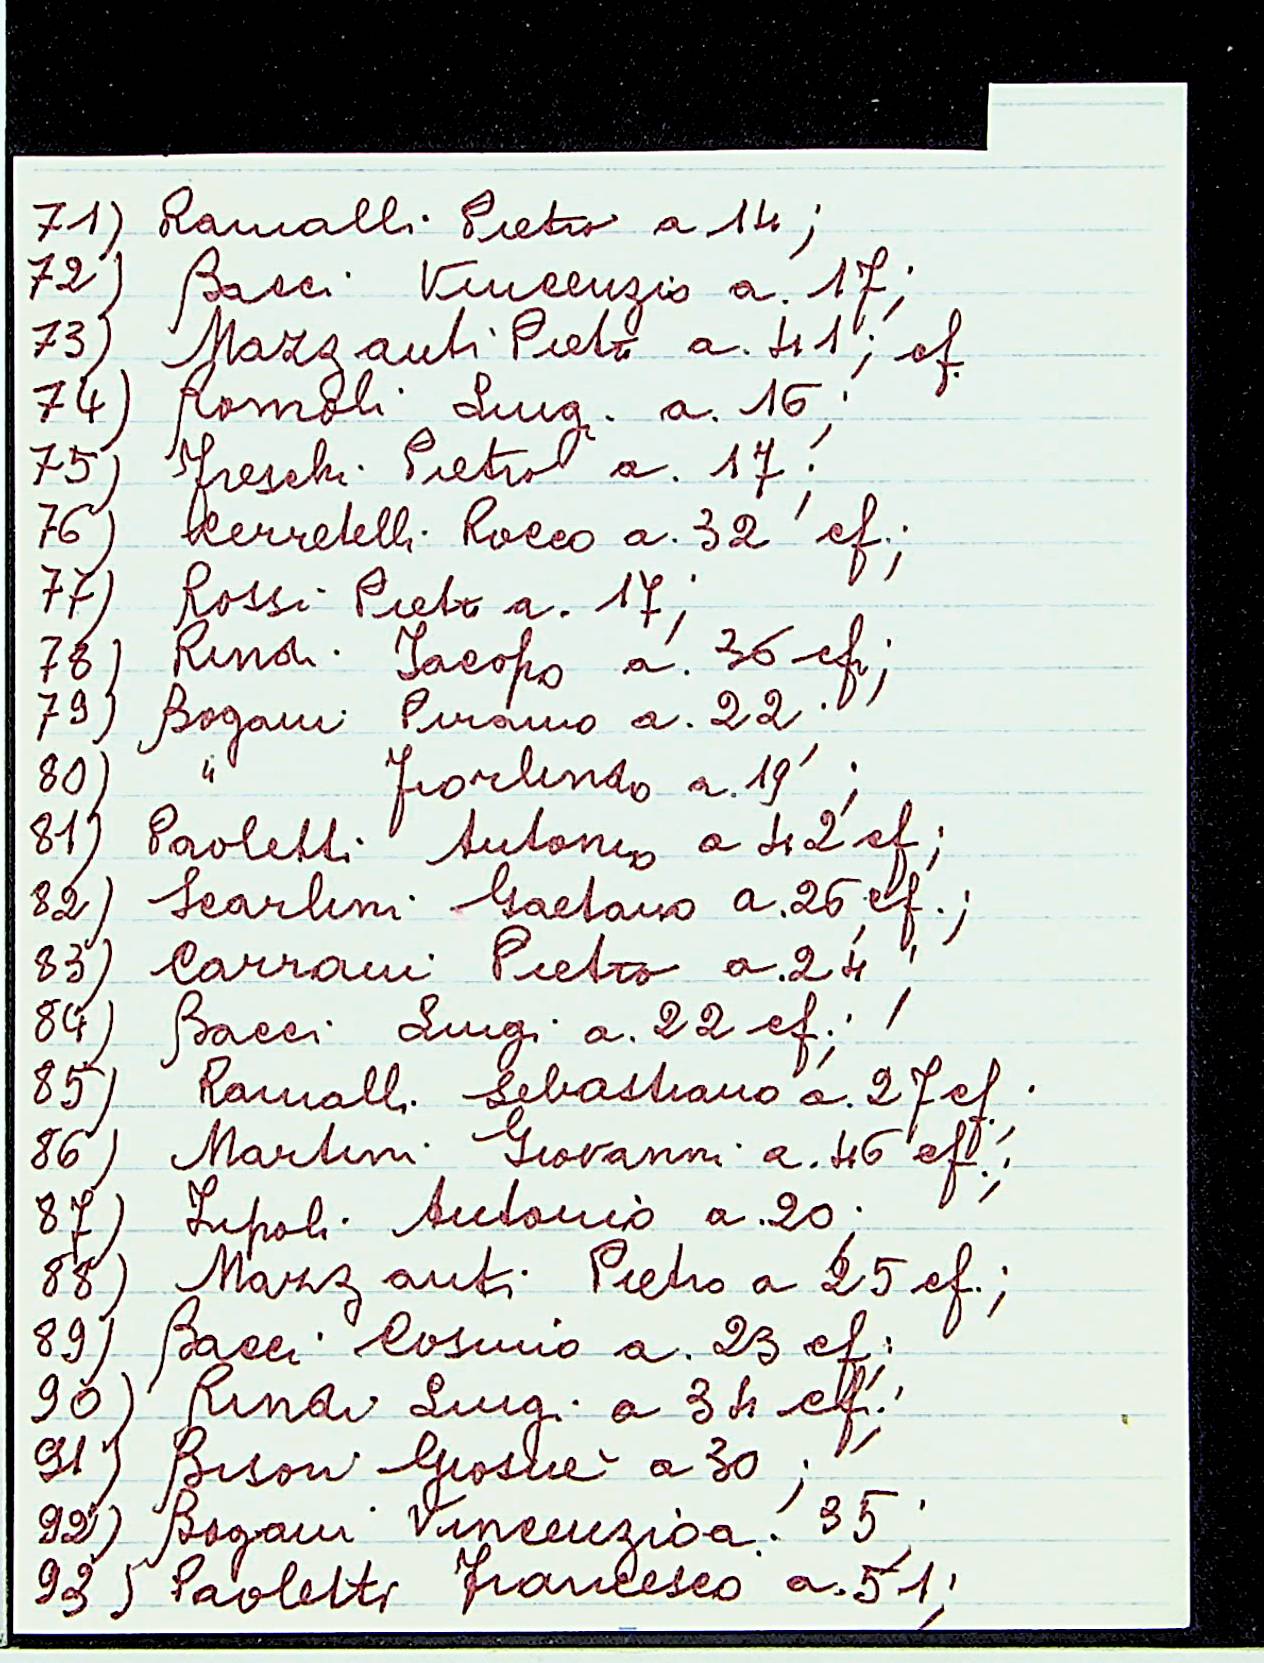 71) Ramalli Pietro a 14;
72) Bacci Vincenzio a. 17;
73) Mazzanti Pietro a. 41; cf.
74) Romoli Luigi a. 16;
75) Freschi Pietro a. 17;
76) Cerretelli Rocco a. 32 cf.;
77) Rossi Pietro a. 17;
78) Rindi Jacopo a. 36 cf.;
79) Bogani Piramo a. 22;
80) " Fiorlindo a. 19;
81) Paoletti Antonio a 42 cf;
82) Scarlini Gaetano a. 26 cf.;
83) Carrani Pietro a. 24;
84) Bacci Luigi a. 22 cf.;
85) Ramalli Sebastiano a. 27 cf.;
86) Martini Giovanni a. 46 cf.;
87) Lupoli Antonio a. 20;
88) Mazzanti Pietro a 25 cf.;
89) Bacci Cosimo a. 23 cf;
90) Rindi Luigi a 34 cf.;
91) Bisori Giosuè a 30;
92) Bogani Vincenzio a. 35;
93) Paoletti Francesco a. 51;